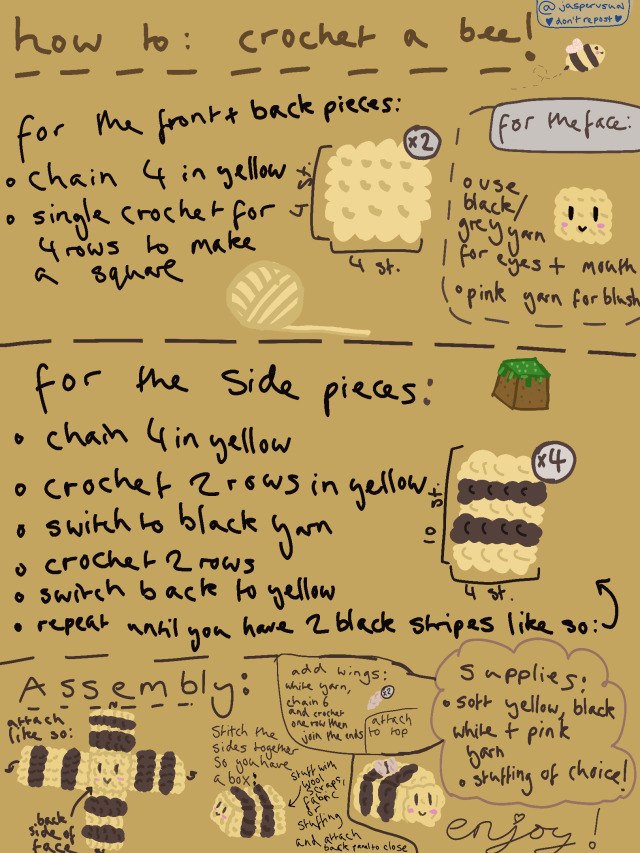 @jasperusual
♥ don't repost ♥
how to: crochet a bee!
for the front + back pieces:
• chain 4 in yellow
• single crochet for
4 rows to make
a square
x2
4 st.
4 st.
for the face:
• use
black/
grey yarn
for eyes + mouth
• pink yarn for blush
for the side pieces:
• chain 4 in yellow
• crochet 2 rows in yellow
• switch to black yarn
• crochet 2 rows
• switch back to yellow
• repeat until you have 2 black stripes like so:
x4
10 st.
4 st.
Assembly:
attach
like so:
back
side of
face
Stitch the
sides together
so you have
a box!
add wings:
white yarn,
chain 6
and crochet
one row then
join the ends
x2
attach
to top
stuff with
wool
scraps,
fabric
or
stuffing
and attach
back panel to close
supplies:
• soft yellow, black
white + pink
yarn
• stuffing of choice!
enjoy!